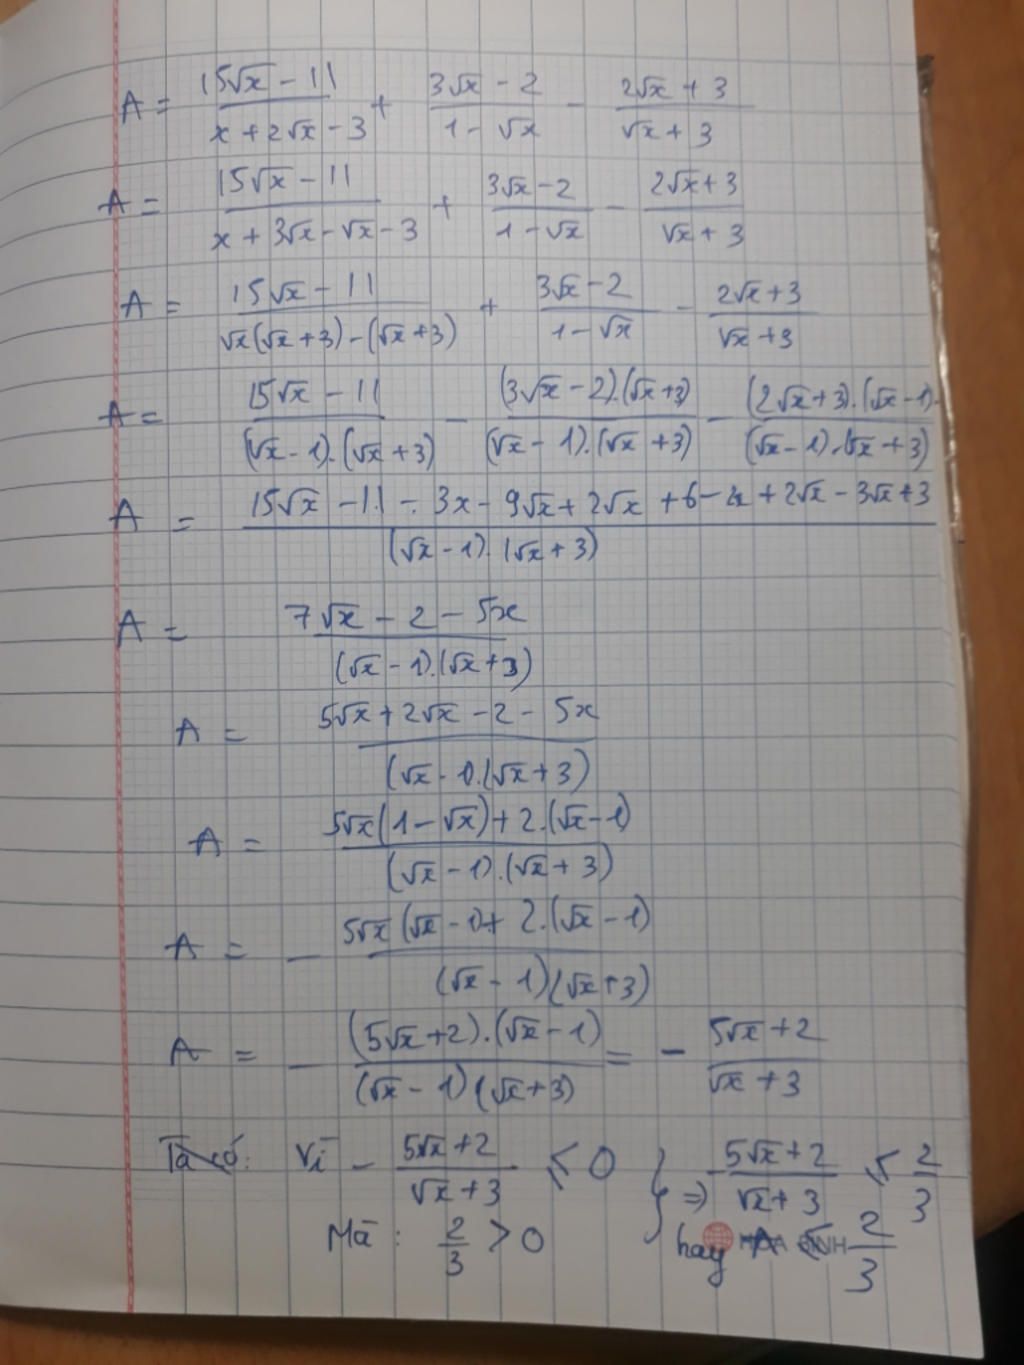 A = (15√x - 11)/(x + 2√x - 3) + (3√x - 2)/(1 - √x) - (2√x + 3)/(√x + 3)
A = (15√x - 11)/(x + 3√x - √x - 3) + (3√x - 2)/(1 - √x) - (2√x + 3)/(√x + 3)
A = (15√x - 11)/(√x(√x + 3) - (√x + 3)) + (3√x - 2)/(1 - √x) - (2√x + 3)/(√x + 3)
A = (15√x - 11)/((√x - 1).(√x + 3)) - ((3√x - 2).(√x + 3))/((√x - 1).(√x + 3)) - ((2√x + 3).(√x - 1).)/((√x - 1).(√x + 3))
A = (15√x - 11 - 3x - 9√x + 2√x + 6 - 2x + 2√x - 3√x + 3)/((√x - 1).(√x + 3))
A = (7√x - 2 - 5x)/((√x - 1).(√x + 3))
A = (5√x + 2√x - 2 - 5x)/((√x - 1).(√x + 3))
A = (5√x(1 - √x) + 2.(√x - 1))/((√x - 1).(√x + 3))
A = - (5√x(√x - 1) + 2.(√x - 1))/((√x - 1)(√x + 3))
A = - ((5√x + 2).(√x - 1))/((√x - 1)(√x + 3)) = - (5√x + 2)/(√x + 3)
Ta có: Vì - (5√x + 2)/(√x + 3) ≤ 0 } ⇒ - (5√x + 2)/(√x + 3) ≤ 2/3
Mà : 2/3 > 0 hay A ≤ 2/3